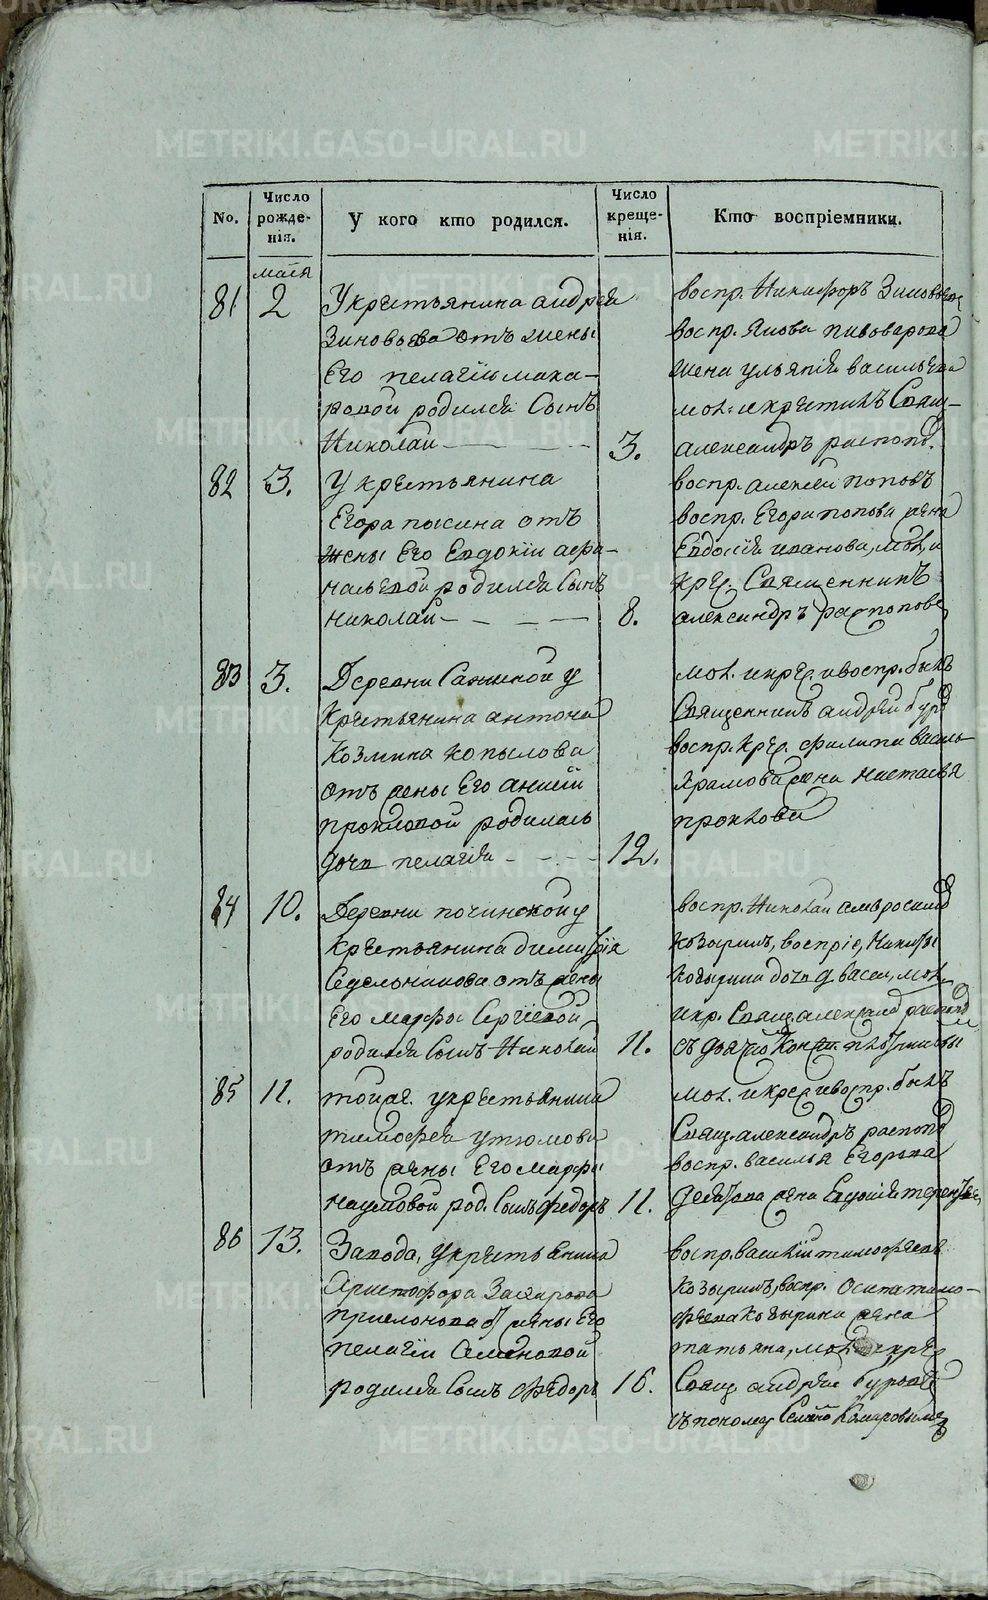 METRIKI.GASO-URAL.RU
No.
Число рожденія.
У кого кто родился.
Число крещенія.
Кто воспріемники.
маія
81 2
У крестьянина андрея
Зиновьева отъ жены
Его пелагіи мака-
ровой родился Сынъ
Николай 3.
воспр. Никифоръ Зиновьевъ
воспр. Якова пивоварова
жена ульянія васильева
мол. и крестилъ Свящ-
александръ распопов
82 3.
У крестьянина
Егора
жены Его Евдокіи афа-
насьевой родился Сынъ
николай 8.
воспр. алексей поповъ
воспр. Егора попова жена
Евдокія иванова, мол. и
крес. Священникъ
александръ распопов
83 3.
Деревни Саниной у
Крестьянина антона
Козмина копылова
отъ жены Его
прокловой родилась
дочь пелагія 12.
мол. и крес. и воспр. былъ
Священникъ андрей
воспр. крес. филипа василь
жена настасья
84 10.
Деревни починской у
крестьянина димитрія
Седельникова отъ жены
Его марфы Сергіевой
родился Сынъ Николай 11.
воспр. Николай амвросимов
козыринъ, воспріе, Никиты
козырина дочь васса, мол.
и кр. Свящ. александ распопов
съ дьячко
85 11.
той же. у крестьянина
тимофея утюмова
отъ жены Его марфы
наумовой род. Сынъ федоръ 11.
мол. и крес. и воспр. былъ
Свящ. александръ распопов
воспр. василья Егорова
жена Евдокія терентьев
86 13.
Завода, у крестьянина
Христофора Захарова
жены Его
пелагіи Семеновой
родился Сынъ Федоръ 16.
воспр. василій тимофеевъ
козыринъ, воспр. Осипа тимо-
феева козырина жена
татьяна, мол. и крес.
Свящ андрей